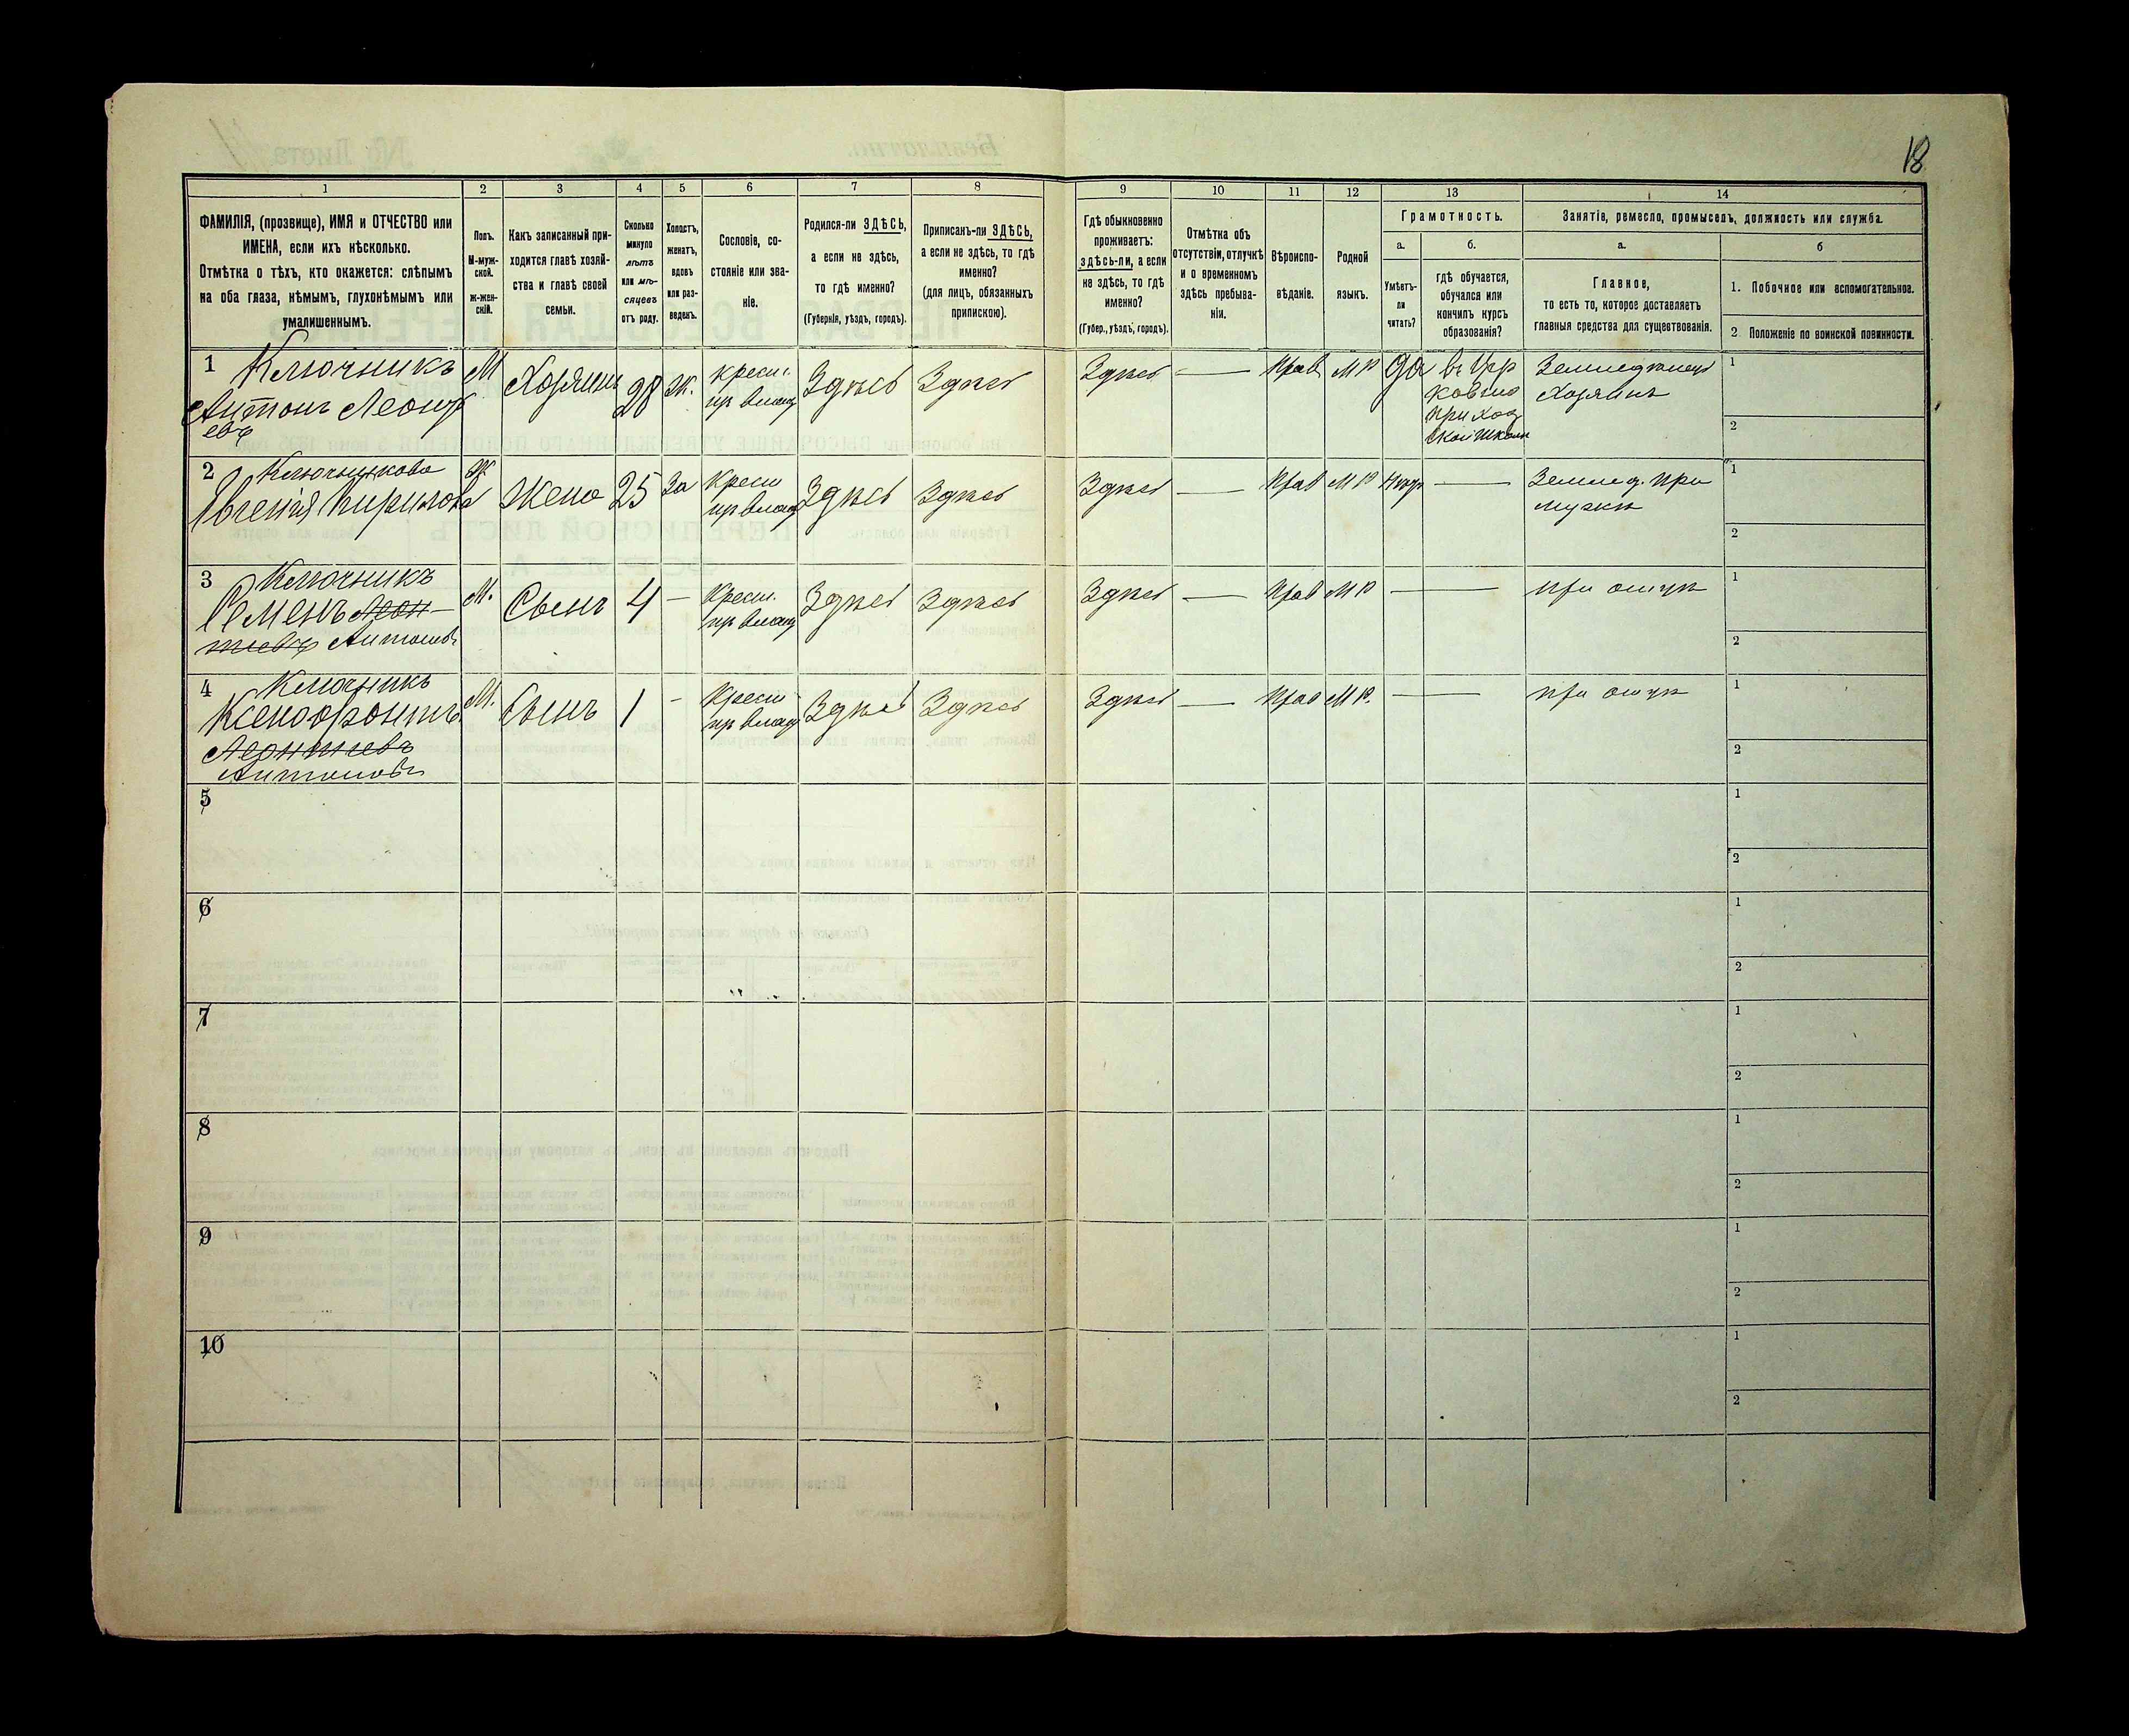 18
1 2 3 4 5 6 7 8 9 10 11 12 13 14
ФАМИЛІЯ, (прозвище), ИМЯ и ОТЧЕСТВО или
ИМЕНА, если ихъ нѣсколько.
Отмѣтка о тѣхъ, кто окажется: слѣпымъ
на оба глаза, нѣмымъ, глухонѣмымъ или
умалишеннымъ.
Полъ.
М-муж-
ской.
Ж-жен-
скій.
Какъ записанный при-
ходится главѣ хозяй-
ства и главѣ своей
семьи.
Сколько
минуло
лѣтъ
или мѣ-
сяцевъ
отъ роду.
Холостъ,
женатъ,
вдовъ
или раз-
веденъ.
Сословіе, со-
стояніе или зва-
ніе.
Родился-ли ЗДѢСЬ,
а если не здѣсь,
то гдѣ именно?
(Губернія, уѣздъ, городъ).
Приписанъ-ли ЗДѢСЬ,
а если не здѣсь, то гдѣ
именно?
(для лицъ, обязанныхъ
припискою).
Гдѣ обыкновенно
проживаетъ:
здѣсь-ли, а если
не здѣсь, то гдѣ
именно?
(Губер., уѣздъ, городъ).
Отмѣтка объ
отсутствіи, отлучкѣ
и о временномъ
здѣсь пребыва-
ніи.
Вѣроиспо-
вѣданіе.
Родной
языкъ.
Грамотность.
а.
Умѣетъ-
ли
читать?
б.
гдѣ обучается,
обучался или
кончилъ курсъ
образованія?
Занятіе, ремесло, промыселъ, должность или служба.
а.
Главное,
то есть то, которое доставляетъ
главныя средства для существованія.
б
1. Побочное или вспомогательное.
2 Положеніе по воинской повинности.
1 Ключникъ
Антонъ Леонт
евъ
М Хозяинъ 28 Ж.
крест.
пр влад
Здѣсь Здѣсь Здѣсь — Прав М Р да
въ Цер
ковно
приход
ской школѣ
Земледѣлецъ
Хозяинъ
1
2
2 Ключникова
Евгенія Кирилова
Ж Жена 25 За
Крест
пр влад
Здѣсь Здѣсь Здѣсь — Прав М Р —
Землед. при
мужѣ
1
2
3 Ключникъ
Семенъ Леон-
тіевъ Антоновъ
М. Сынъ 4 —
Крест.
пр влад
Здѣсь Здѣсь Здѣсь — Прав М Р —
при отцѣ
1
2
4 Ключникъ
Ксенофонтъ
Леонтіевъ
Антоновъ
М. Сынъ 1 -
Крест
пр влад
Здѣсь Здѣсь Здѣсь — Прав М Р. —
при отцѣ
1
2
5
1
2
6
1
2
7
1
2
8
1
2
9
1
2
10
1
2